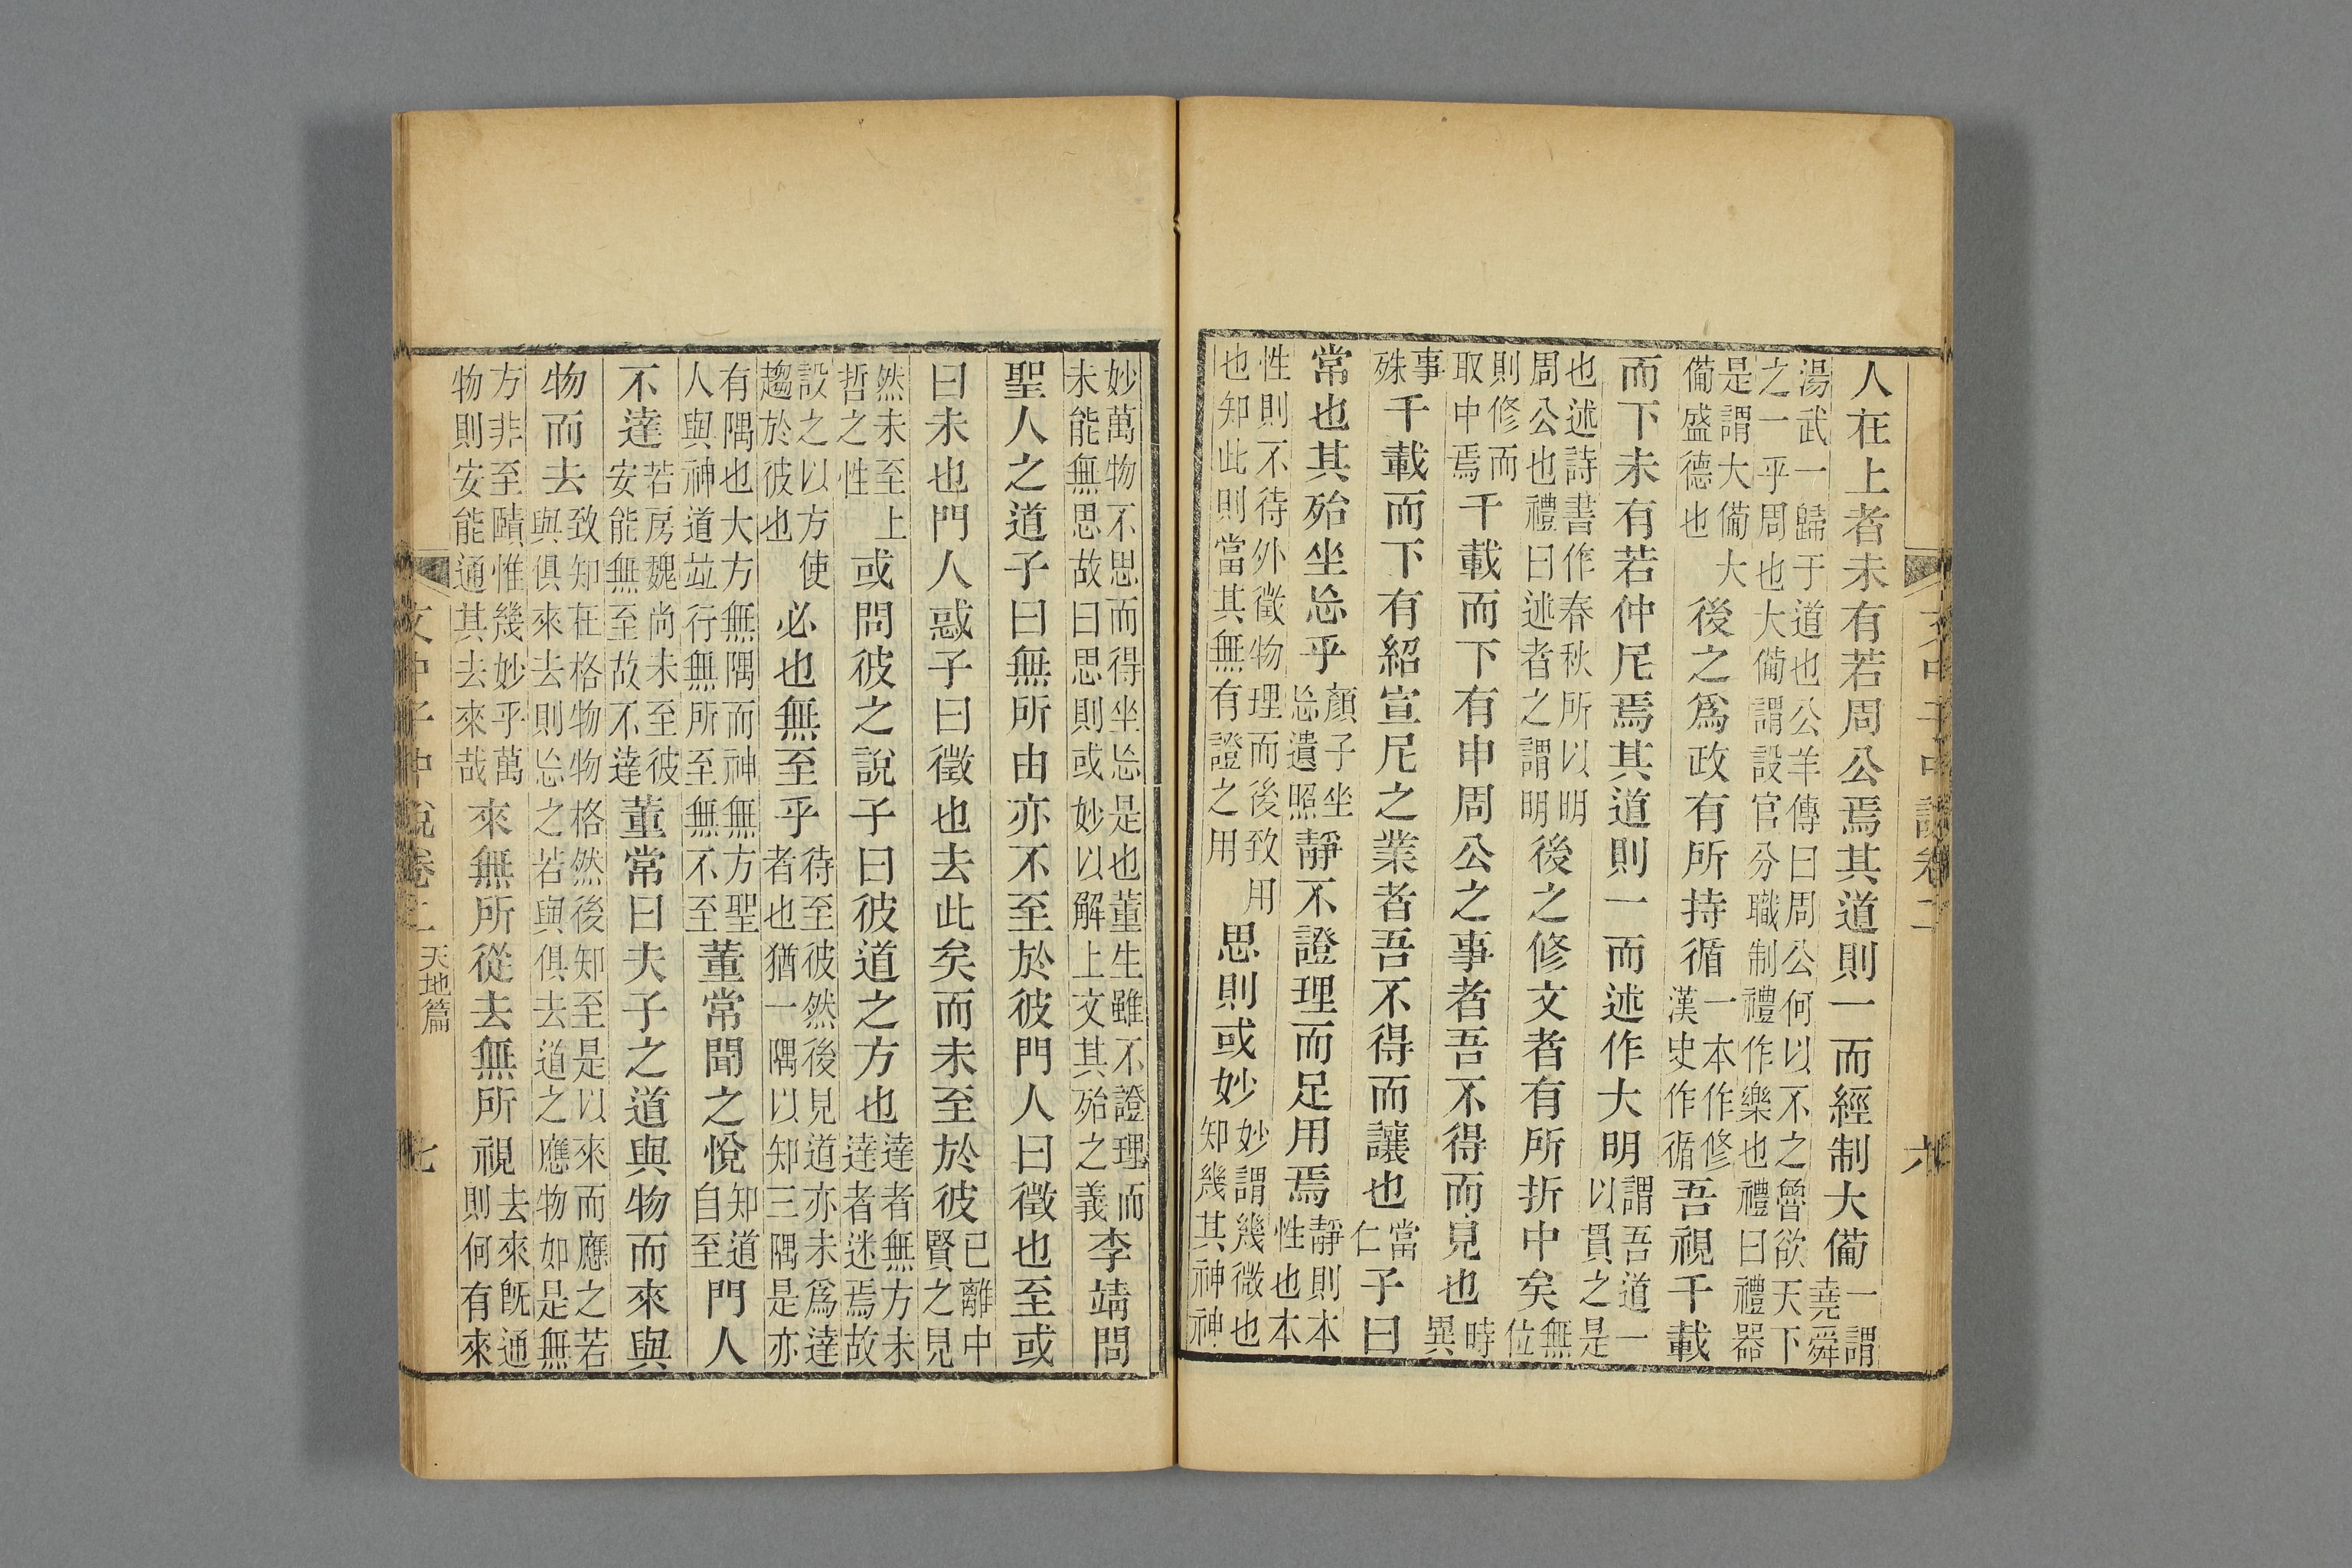 文中子中說卷二 六
人在上者未有若周公焉其道則一而經制大僃一謂堯舜
湯武一歸于道也公羊傳曰周公何以不之魯欲天下之一乎周也大僃謂設官分職制禮作樂也禮曰禮器
是謂大僃大僃盛德也後之爲政有所持循一本作修漢史作循吾視千載
而下未有若仲尼焉其道則一而述作大明謂吾道一以貫之是
也述詩書作春秋所以明周公也禮曰述者之謂明後之修文者有所折中矣無位
則修而取中焉千載而下有申周公之事者吾不得而見也時異
事殊千載而下有紹宣尼之業者吾不得而讓也當仁子曰
常也其殆坐忘乎顏子坐忘遺照靜不證理而足用焉靜則本性也本
性則不待外徵物理而後致用也知此則當其無有證之用思則或妙妙謂幾微也知幾其神神
妙萬物不思而得坐忘是也董生雖不證理而未能無思故曰思則或妙以解上文其殆之義李靖問
聖人之道子曰無所由亦不至於彼門人曰徵也至或
曰未也門人惑子曰徵也去此矣而未至於彼已離中賢之見
然未至上哲之性或問彼之說子曰彼道之方也達者無方未達者迷焉故
設之以方使趨於彼也必也無至乎待至彼然後見道亦未爲達者也猶一隅以知三隅是亦
有隅也大方無隅而神無方聖人與神道竝行無所至無不至董常聞之悅知道自至門人
不達若房魏尚未至彼安能無至故不達董常曰夫子之道與物而來與
物而去致知在格物物格然後知至是以來而應之若與俱來去則忘之若與俱去道之應物如是無
方非至賾惟幾妙乎萬物則安能通其去來哉來無所從去無所視去來旣通則何有來
文中子中說卷二 天地篇 七